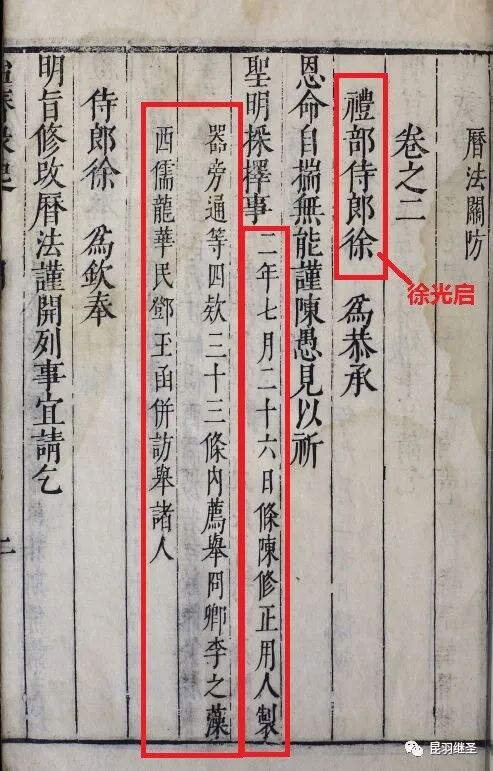 曆法關防
卷之二
禮部侍郎徐　為恭承
恩命自揣無能謹陳愚見以祈
聖明採擇事
二年七月二十六日條陳修正用人製
器旁通等四欵三十三條內薦舉冏卿李之藻
西儒龍華民鄧玉函併訪舉諸人
侍郎徐　為欽奉
明旨修改曆法謹開列事宜請乞
二
徐光启
昆羽继圣